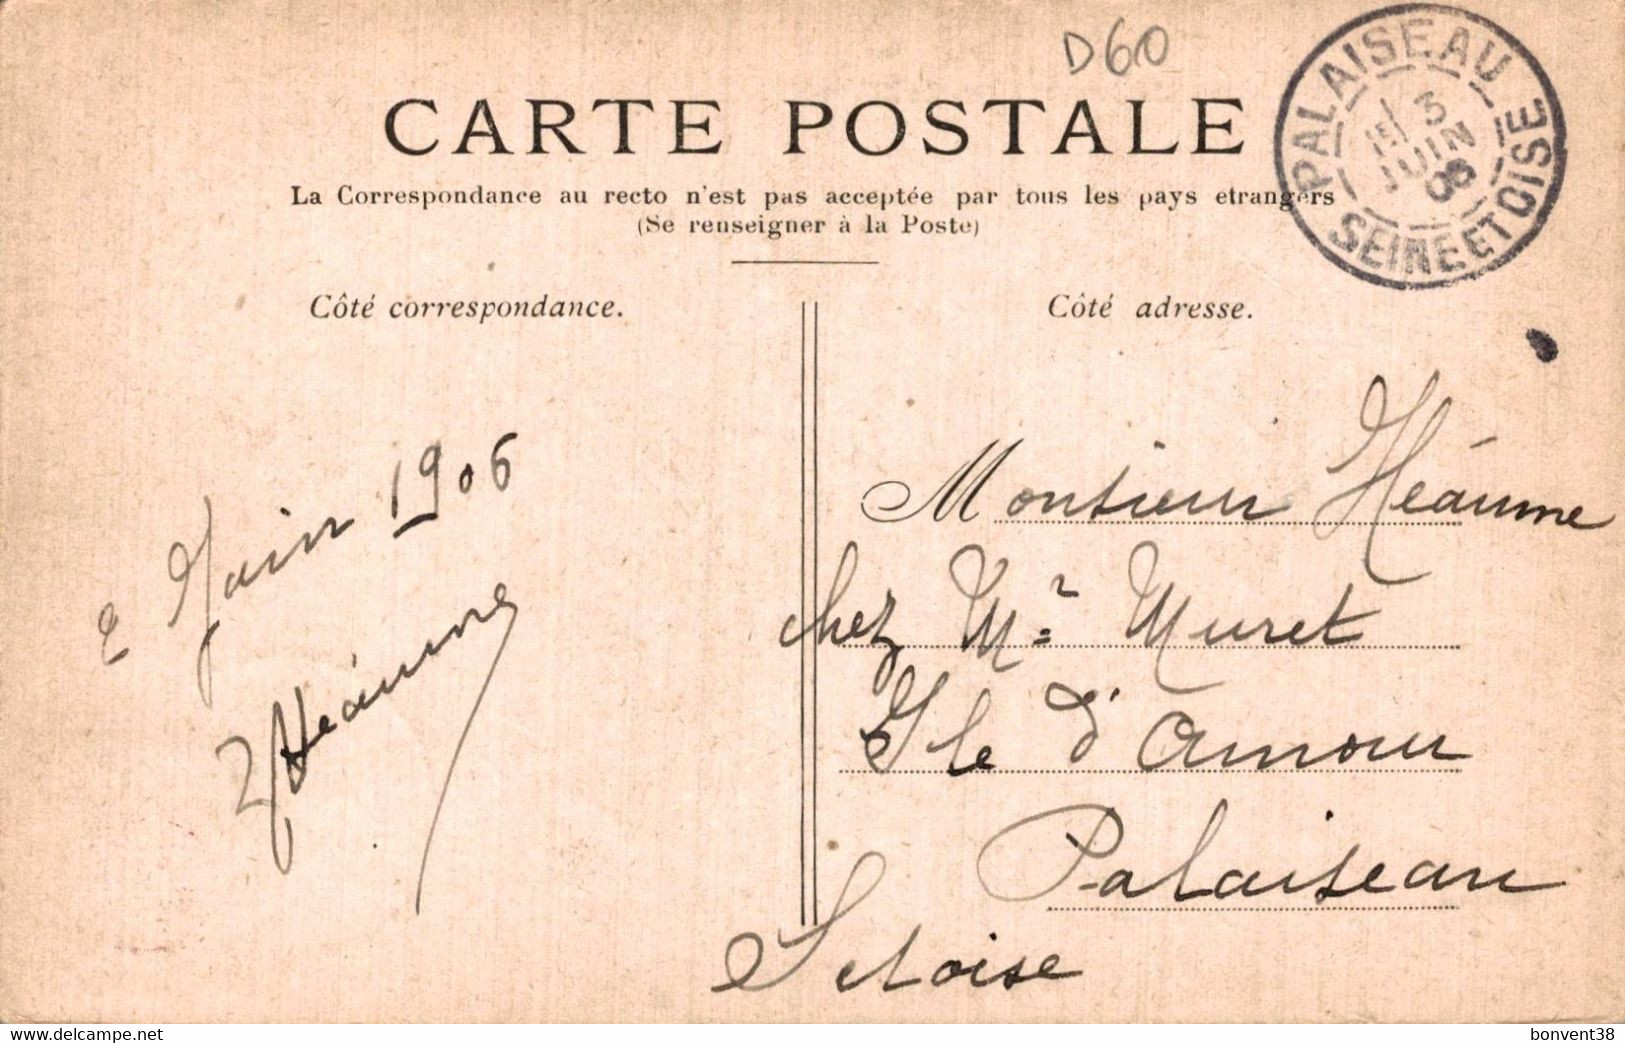 D60
CARTE POSTALE
La Correspondance au recto n'est pas acceptée par tous les pays etrangers
(Se renseigner à la Poste)
PALAISEAU
3
JUIN
06
SEINE ET OISE
Côté correspondance.
Côté adresse.
2 Juin 1906
Héaume
Monsieur Héaume
chez Mr Muret
Ile d'Amour
Palaiseau
S et oise
www.delcampe.net
bonvent38